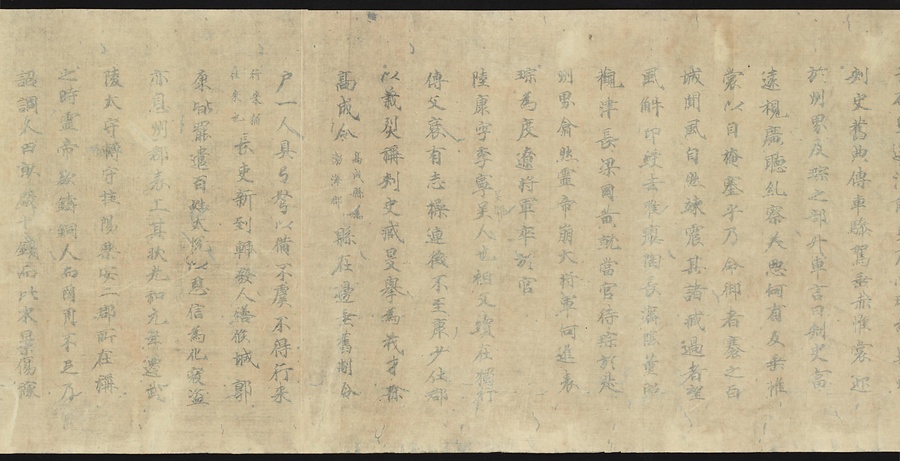 刺史舊典傳車驂駕垂赤帷裳迎
於州界及琮之部升車言曰刺史當
遠視廣聽糾察美惡何有反垂帷
裳以自掩塞乎乃命御者褰之百
城聞風自然竦震其諸臧過者望
風解印綬去唯癭陶長濟陰董昭
觀津長梁國黃就當官待琮於是
州界翕然靈帝崩大將軍何進表
琮為度遼將軍卒於官
陸康字季寧吳人也祖父續在獨行
傳父褒有志操連徵不至康少仕郡
以義烈稱刺史臧旻舉為茂才除
高成令高成縣屬勃海郡縣在邊垂舊制令
戶一人具弓弩以備不虞不得行來
行來猶往來也長吏新到輒發人繕修城郭
康皆罷遣百姓大悅以恩信為化寇盜
亦息州郡表上其狀光和元年遷武
陵太守轉守桂陽樂安二郡所在稱
之時靈帝欲鑄銅人而國用不足乃
詔調人田畝斂十錢而比水旱傷稼